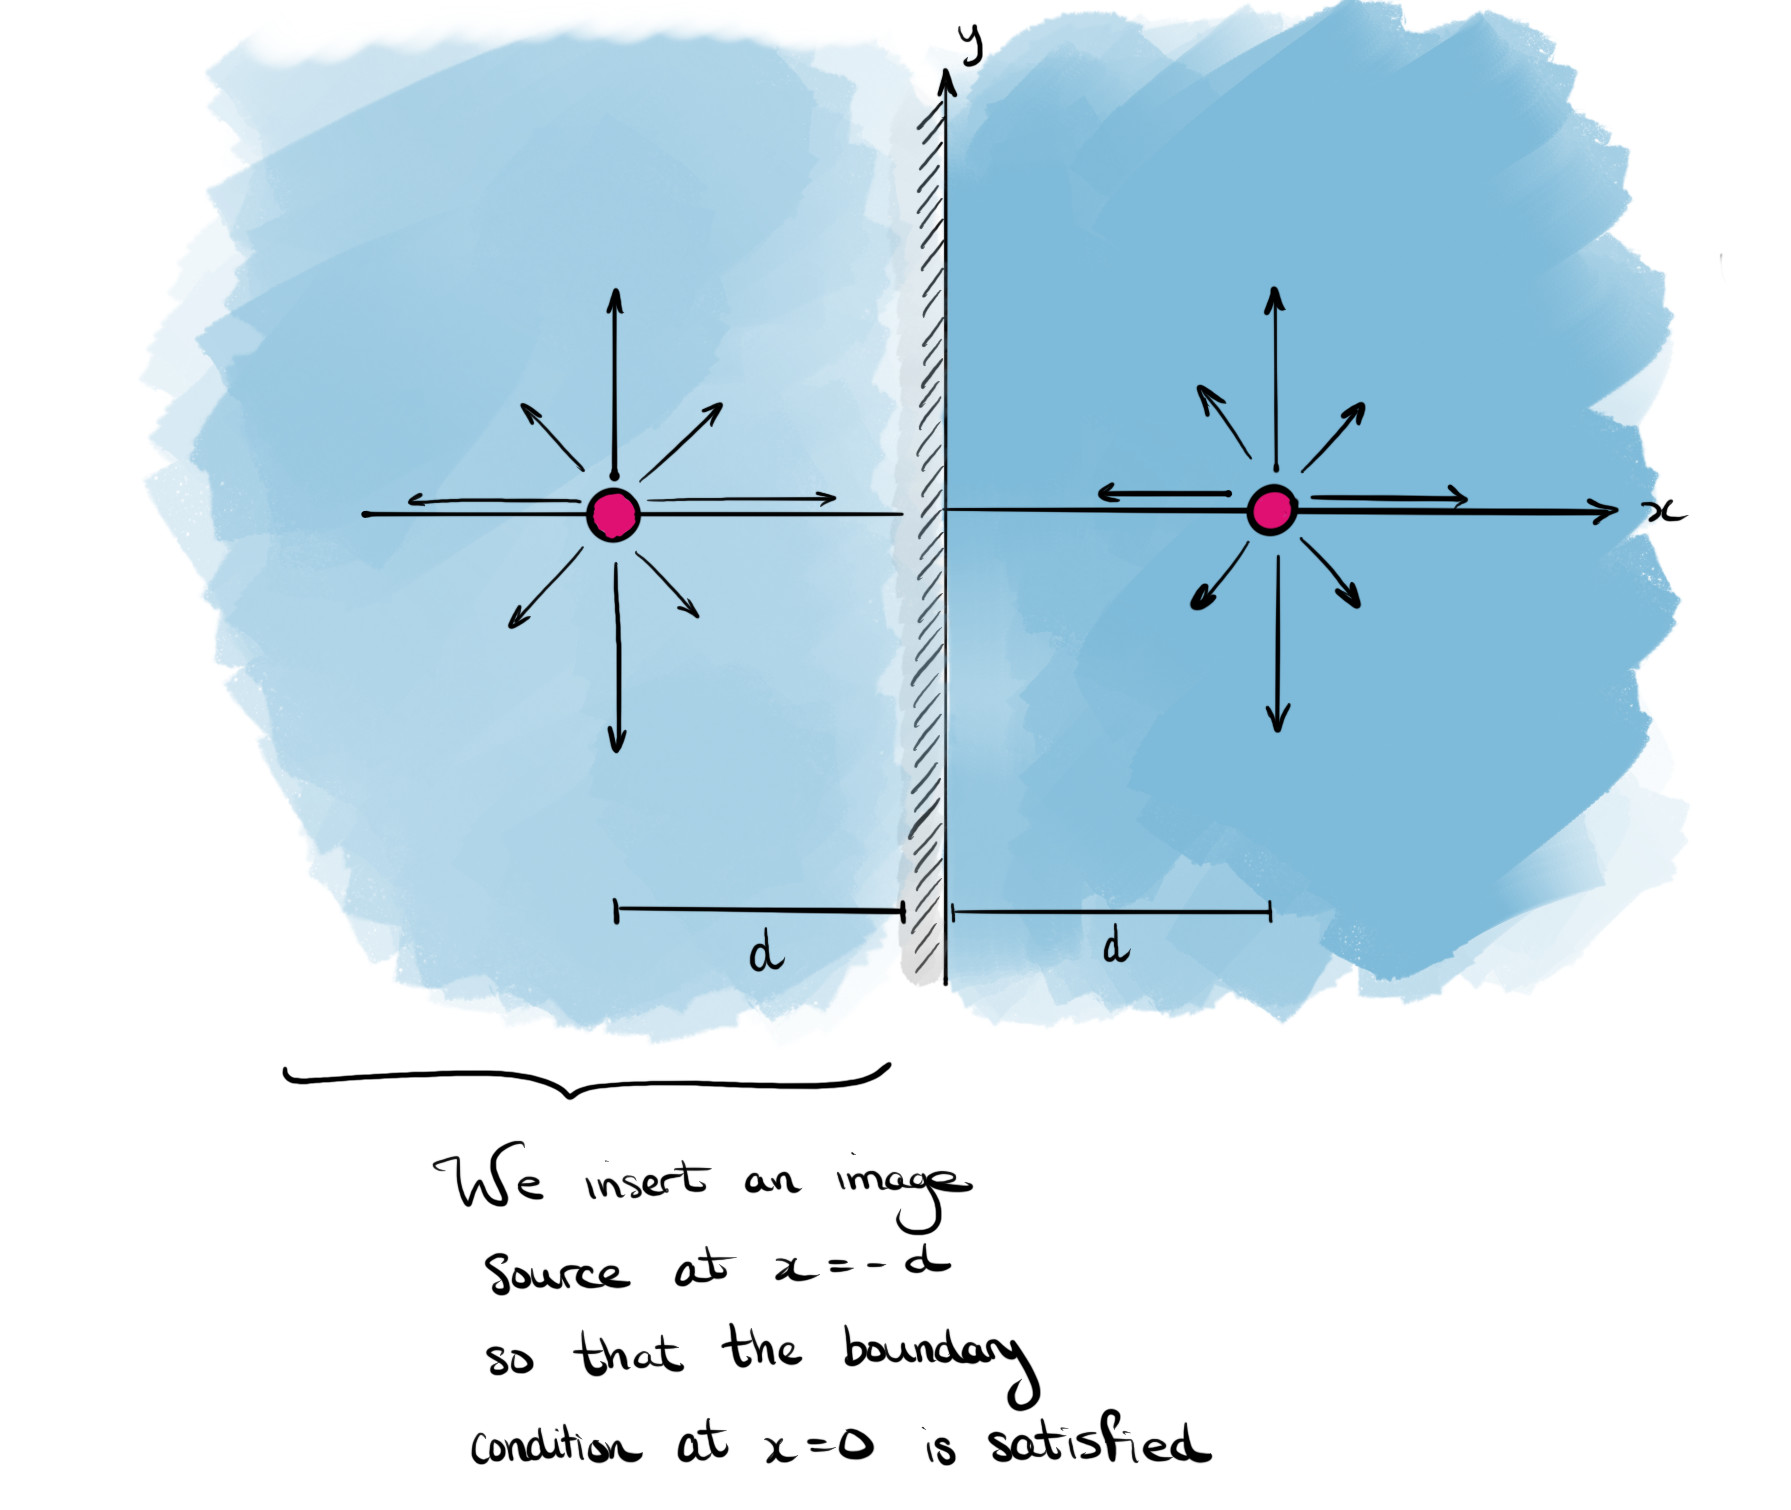 y
x
d
d
We insert an image
source at x = - d
so that the boundary
condition at x = 0 is satisfied